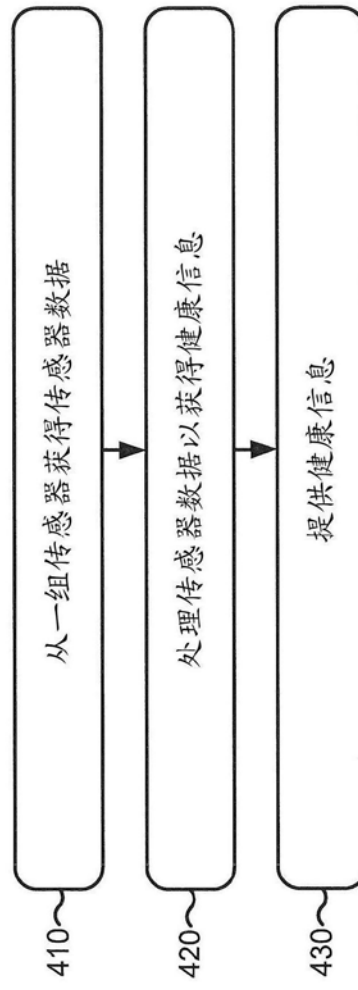 410
从一组传感器获得传感器数据
420
处理传感器数据以获得健康信息
430
提供健康信息